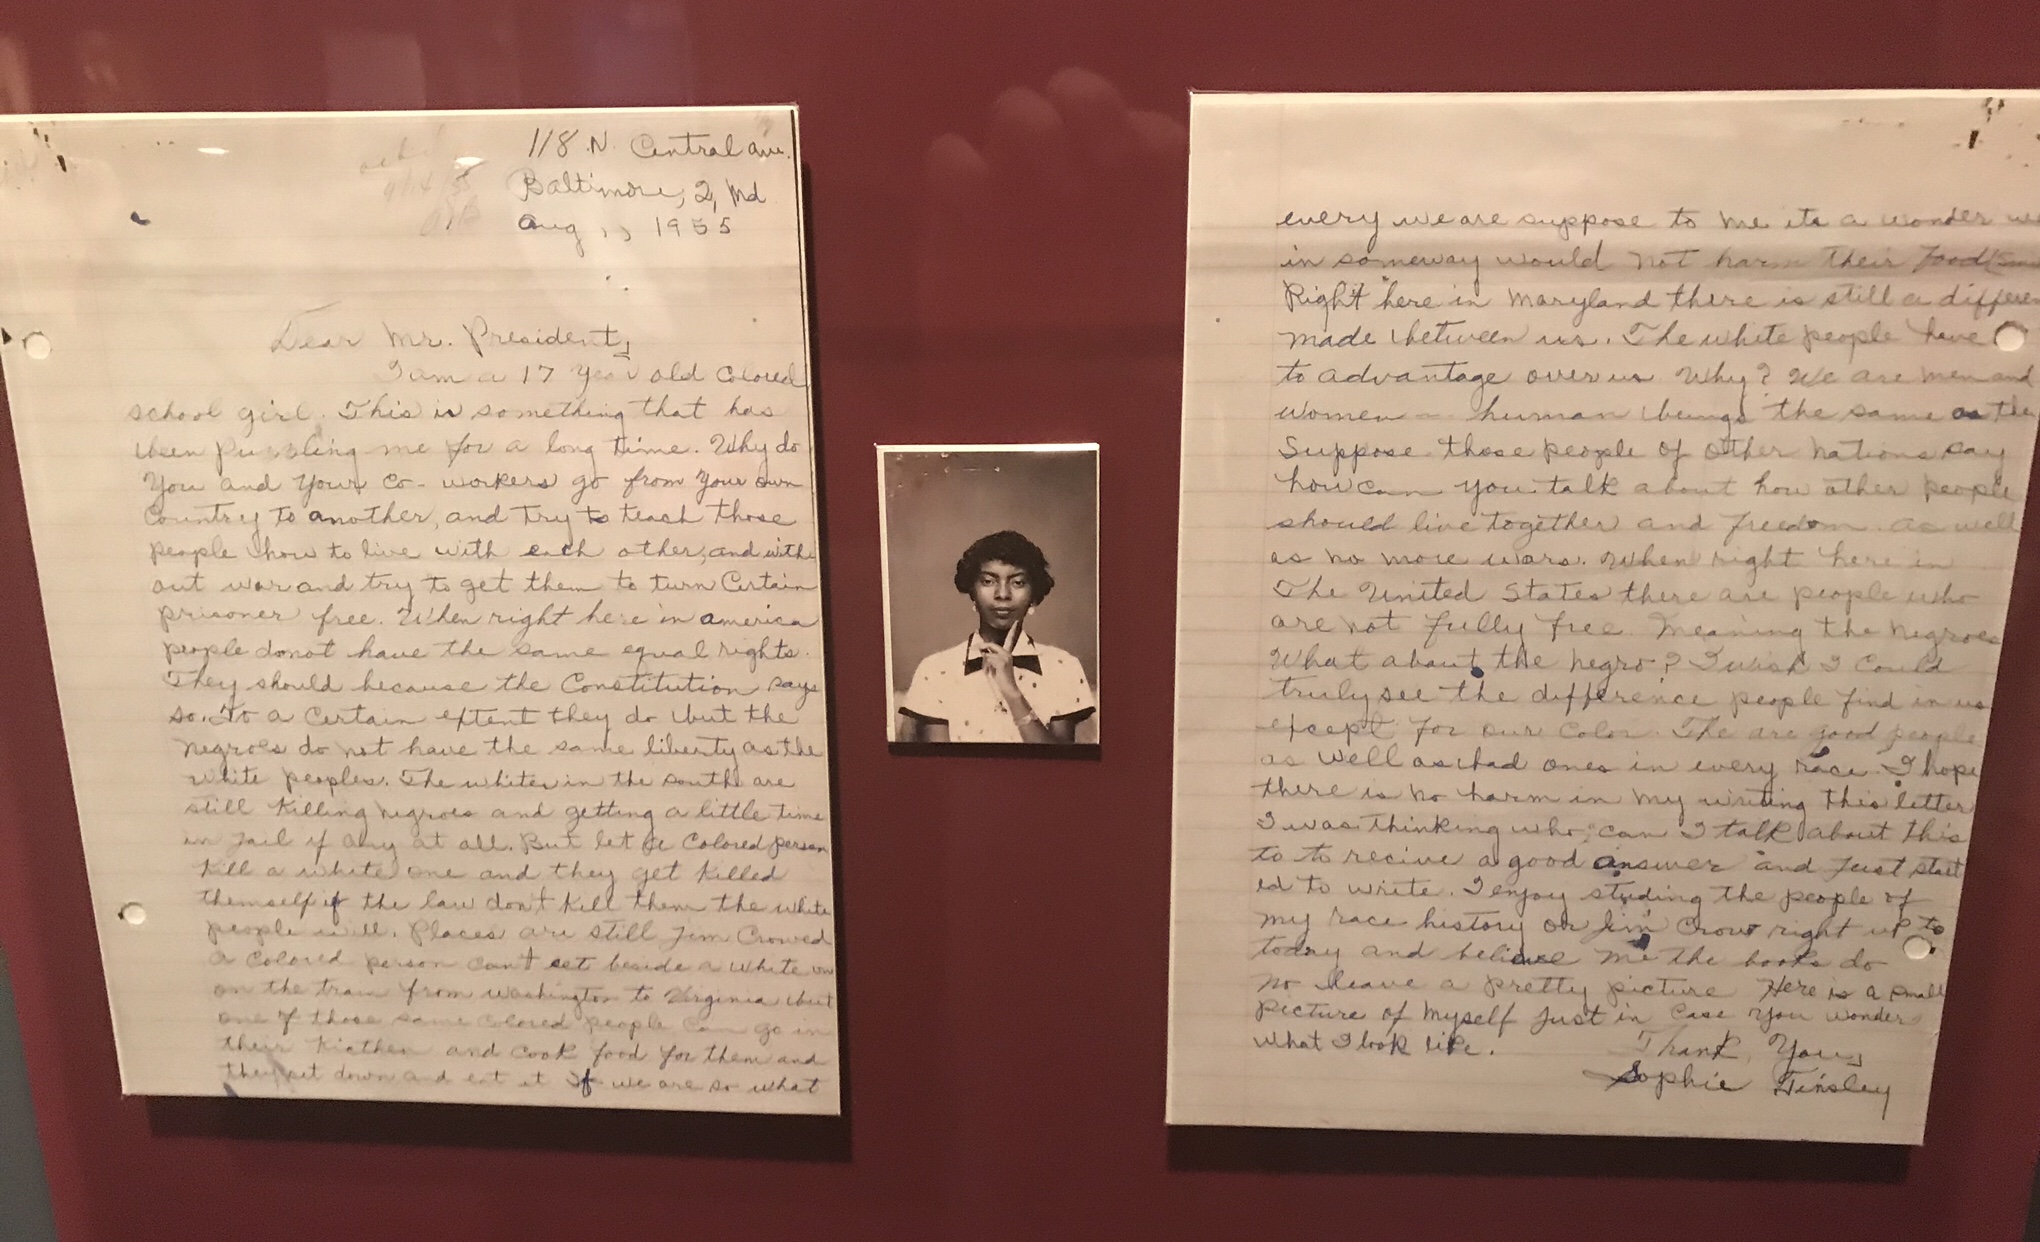 118 N. Central ave.
Baltimore, 2, Md
Aug , , 1955
Dear Mr. President,
I am a 17 year old Colored
school girl. This is something that has
been puzzling me for a long time. Why do
You and Your Co-workers go from Your own
Country to another, and try to teach those
people how to live with each other, and with
out war and try to get them to turn Certain
prisoner free. When right here in america
people donot have the same equal rights.
They should because the Constitution says
so. To a Certain extent they do but the
negroes do not have the same liberty as the
white peoples. The whites in the south are
still killing negroes and getting a little time
in Jail if any at all. But let a Colored person
kill a white one and they get killed
themself if the law don't kill them the white
people will. Places are still Jim Crowed
a Colored person can't set beside a white
on the train from Washington to Virginia but
one of those same colored people can go in
their kicthen and cook food for them and
they set down and eat it If we are so what
every we are suppose to me its a wonder we
in someway would not harm their food
Right here in Maryland there is still a differen
made between us. The white people have
to advantage over us Why? We are men and
women - human beings the same as the
Suppose those people of other nations say
how can you talk about how other people
should live together and freedom as well
as no more wars. When right here in
The United States there are people who
are not fully free. Meaning the negroes
What about the negro? I wish I Could
truly see the difference people find in us
except for our Color. The are good people
as well as bad ones in every race. I hope
there is no harm in my writing this letter
I was thinking who can I talk about this
to to recive a good answer and Just start
ed to write. I enjoy studing the people of
my race history or Jim Crow right up to
today and believe me the books do
no leave a pretty picture Here is a small
picture of myself Just in Case You wonder
what I look like.
Thank You,
Sophie Tinsley